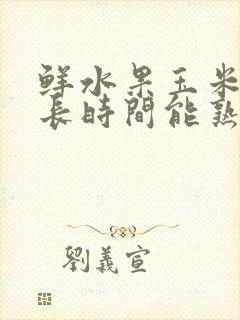 鮮水果玉米
長時間能熟
劉義宣